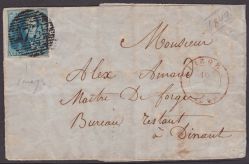 1849
Monsieur
Alex Amand
Maître De forges
Bureau restant
à Dinant